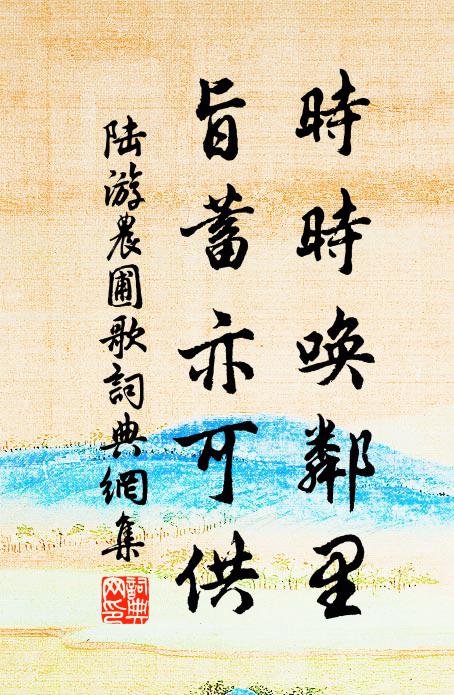 時時喚鄰里
旨蓄亦可供
陸游農圃歌詞典網集
詞典网印